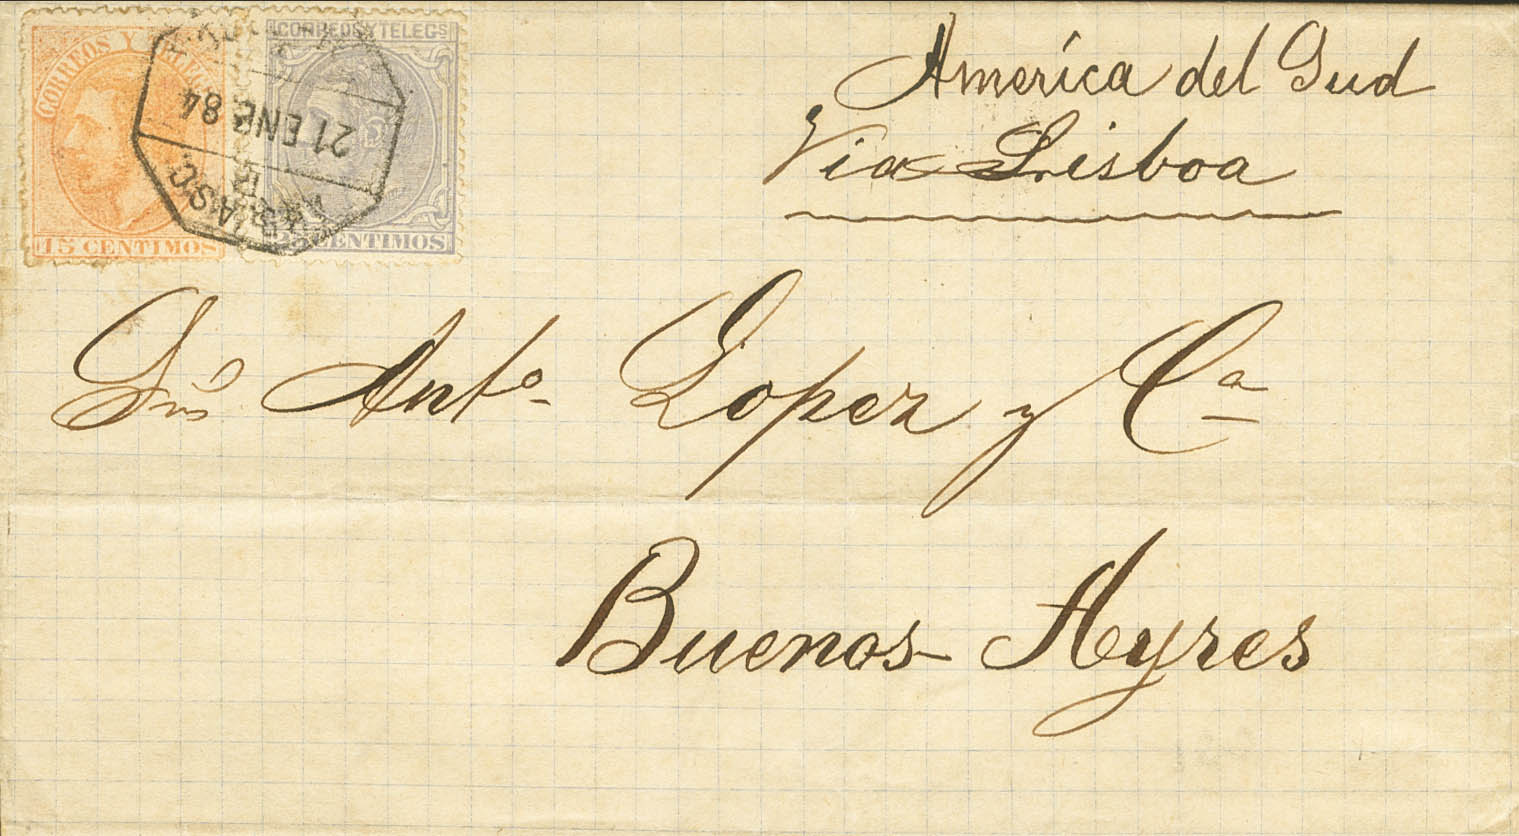 CORREOS Y TELEG
15 CENTIMOS
CORREOS Y TELEGS
CENTIMOS
21 ENE 84
America del Sud
Via Lisboa
Sres Anto. Lopez y Ca
Buenos Ayres